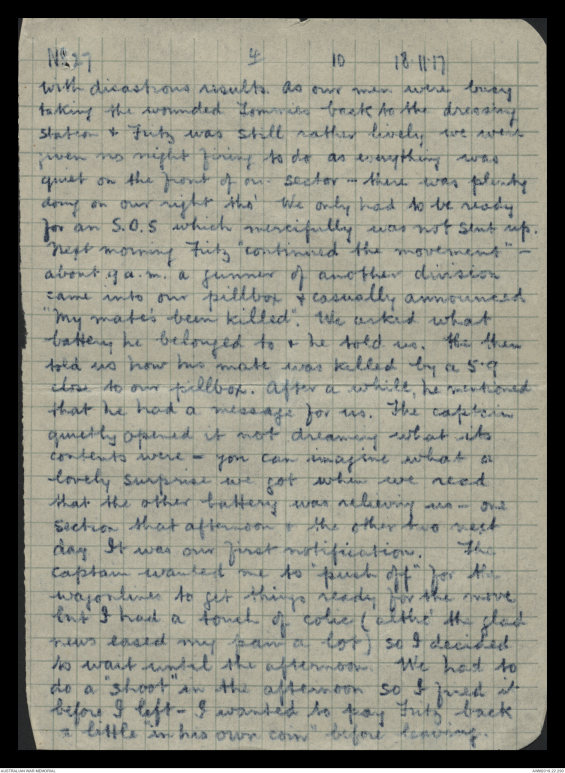 No. 27 4 10 18.11.17
with disastrous results. As our men were busy
taking the wounded Tommies back to the dressing
station & Fritz was still rather lively we were
given no night firing to do as everything was
quiet on the front of our sector - there was plenty
doing on our right tho' We only had to be ready
for an S.O.S which mercifully was not sent up.
Next morning Fritz "continued the movement" -
about 9 a.m. a gunner of another division
came into our pillbox & casually announced
"My mate's been killed". We asked what
battery he belonged to & he told us. He then
told us how his mate was killed by a 5.9
close to our pillbox. After a while, he mentioned
that he had a message for us. The captain
quietly opened it not dreaming what its
contents were - you can imagine what a
lovely surprise we got when we read
that the other battery was relieving us - one
section that afternoon & the other two next
day It was our first notification. The
captain wanted me to "push off" for the
wagonlines to get things ready for the move
but I had a touch of colic (altho' the glad
news eased my pain a lot) so I decided
to wait until the afternoon. We had to
do a "shoot" in the afternoon so I fired it
before I left - I wanted to pay Fritz back
a little "in his own coin" before leaving.
AUSTRALIAN WAR MEMORIAL